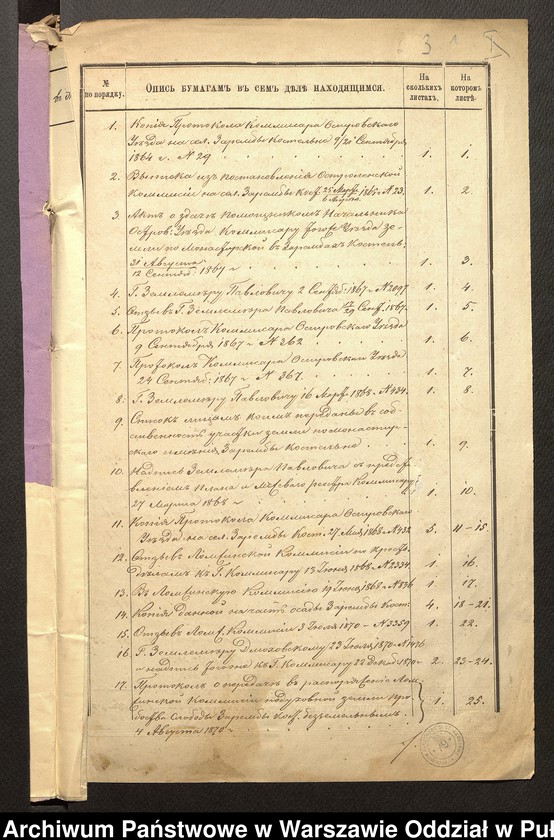 3
№ по порядку.
Опись бумагамъ въ семъ дѣлѣ находящимся.
На сколькихъ листахъ.
На которомъ листѣ.
1. Копія Протокола Коммисара Островскаго
Уѣзда на сел. Зарембы Костельне 9/21 Сентября
1864 г. N 29 1. 1.
2. Выписка изъ постановленія Остроленской
Коммисіи на сел. Зарембы Кост. 1865 N 23. 1. 2.
3. Актъ о сдачѣ Помощникомъ Начальника
Остров: Уѣзда Коммисару того Уѣзда зе-
мли по монастырской въ Зарембахъ Костель:
31 Августа
12 Сентяб. 1867 г 1. 3.
4. Г. Землемѣру Павловичу 2 Сентяб. 1867 г N 2097 1. 4.
5. Отзывъ Г. Землемѣра Павловича 17/29 Сент. 1867. 1. 5.
6. Протоколъ Коммисара Островскаго Уѣзда
9 Сентября 1867 г N 362 1. 6.
7. Протоколъ Коммисара Островскаго Уѣзда
24 Сентяб: 1867 г N 367. 1. 7.
8. Г. Землемѣру Павловичу 16 Марта 1868 г. N 434. 1. 8.
9. Списокъ лицамъ коимъ переданы въ соб-
ственность участки земли по монастыр-
скаго имѣнія Зарембы Костельне 1. 9.
10. Надпись Землемѣра Павловича съ предста-
вленіемъ плана и мѣроваго реестра Коммисару
27 Марта 1868 г 1. 10.
11. Копія Протокола Коммисара Островскаго
Уѣзда на сел. Зарембы Кост. 27 Мая 1868 г. N 432 5. 11-15.
12. Отзывъ Ломжинской Коммисіи по крест.
дѣламъ къ Г. Коммисару 13 Іюня 1868 г. N 2334 1. 16.
13. Въ Ломжинскую Коммисію 19 Іюня 1868 г. N 836 1. 17.
14. Копія данной на часть осады Зарембы Кост. 4. 18-21.
15. Отзывъ Ломж. Коммисіи 3 Іюля 1870 г N 3359 1. 22.
16. Г. Землемѣру 23 Іюля 1870 г N 1476
и надпись того къ Г. Коммисару 22 Декаб. 1870 г. 2. 23-24.
17. Протоколъ о передачѣ въ распоряженіе Лом-
жинской Коммисіи подуховной земли про-
боства Слободы Зарембы Кост. безземельнымъ. 1. 25.
4 Августа 1870 г
Archiwum Państwowe w Warszawie Oddział w Puł